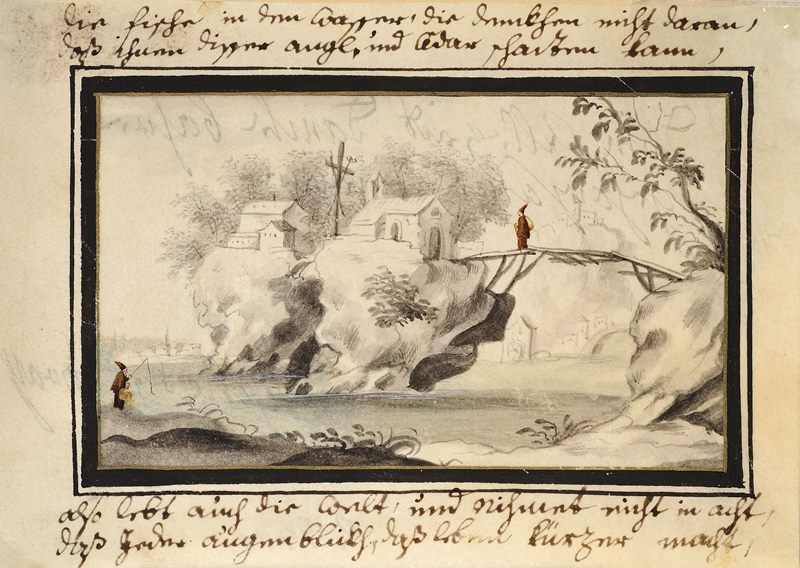 die fische in den Wasser, die denkhen nicht daran,
daß ihnen disser angl, und Adar schaiten kann,
also lebt auch die welt, und Nihmet nicht in acht,
daß Jeder augenblickh, daß leben kürzer macht,